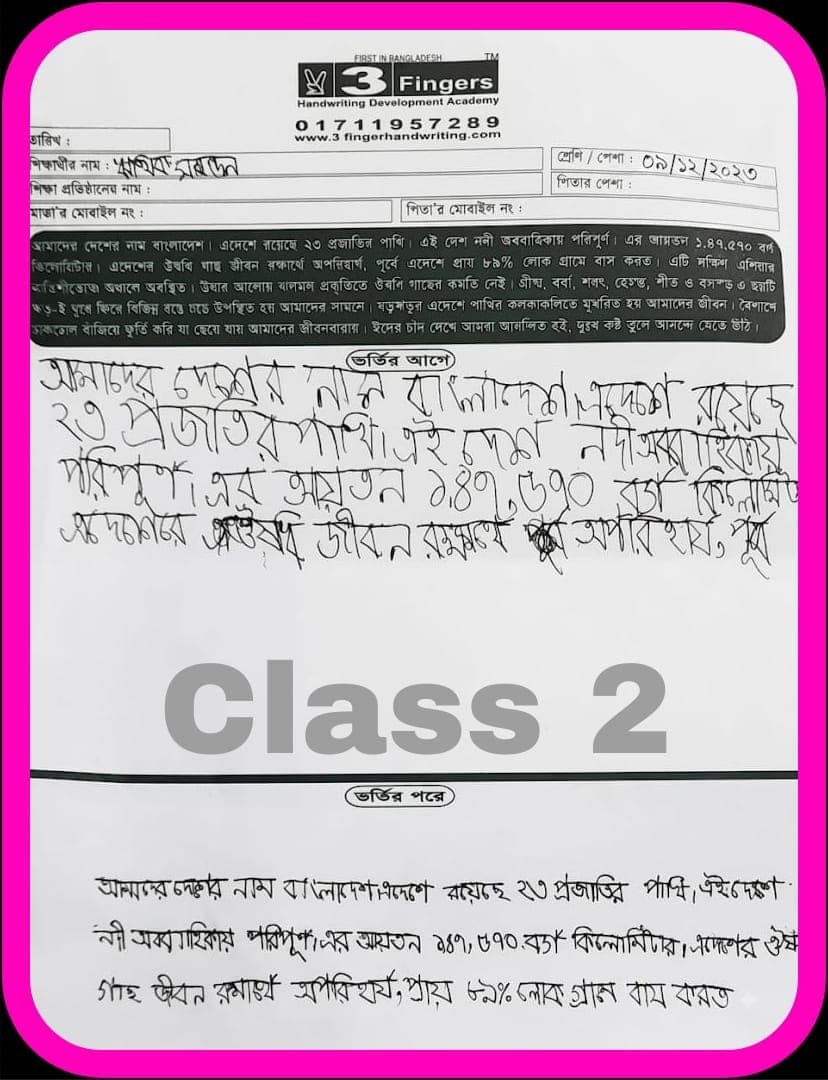 FIRST IN BANGLADESH TM
3 Fingers
Handwriting Development Academy
01711957289
www.3 fingerhandwriting.com
তারিখ :
শিক্ষার্থীর নাম :
শ্রেণি / পেশা : ০৯/১২/২০২৩
শিক্ষা প্রতিষ্ঠানের নাম :
পিতার পেশা :
মাতা'র মোবাইল নং :
পিতা'র মোবাইল নং :
আমাদের দেশের নাম বাংলাদেশ। এদেশে রয়েছে ২৩ প্রজাতির পাখি। এই দেশ নদী অববাহিকায় পরিপূর্ণ। এর আয়তন ১,৪৭,৫৭০ বর্গ
কিলোমিটার। এদেশের ঔষধি গাছ জীবন রক্ষার্থে অপরিহার্য, পূর্বে এদেশে প্রায় ৮৯% লোক গ্রামে বাস করত। এটি দক্ষিণ এশিয়ার
অবস্থিত। উষার আলোয় ঝলমল প্রকৃতিতে ঔষধি গাছের কমতি নেই। গ্রীষ্ম, বর্ষা, শরৎ, হেমন্ত, শীত ও বসন্ত এ ছয়টি
ঘুরে ফিরে বিভিন্ন রঙে ঢঙে উপস্থিত হয় আমাদের সামনে। ষড়ঋতুর এদেশে পাখির কলকাকলিতে মুখরিত হয় আমাদের জীবন। বৈশাখে
ঢাকঢোল বাজিয়ে ফুর্তি করি যা ছেয়ে যায় আমাদের জীবনধারায়। ঈদের চাঁদ দেখে আমরা আনন্দিত হই, দুঃখ কষ্ট ভুলে আনন্দে মেতে উঠি।
ভর্তির আগে
আমাদের দেশের নাম বাংলাদেশ।এদেশে রয়েছে
২৩ প্রজাতির পাখি।এই দেশ নদী অববাহিকায়
পরিপূর্ণ।এর আয়তন ১,৪৭,৫৭০ বর্গ কিলোমিট
এদেশেরে ঔষধি জীবন রক্ষার্থে অপরিহার্য, পূর্ব
Class 2
ভর্তির পরে
আমাদের দেশের নাম বাংলাদেশ।এদেশে রয়েছে ২৩ প্রজাতির পাখি,এই দেশ
নদী অববাহিকায় পরিপূর্ণ।এর আয়তন ১৪৭,৫৭০.বর্গ কিলোমিটার।এদেশের ঔষধ
গাছ জীবন রক্ষার্থে অপরিহার্য,প্রায় ৮৯% লোক গ্রাম বাস করত